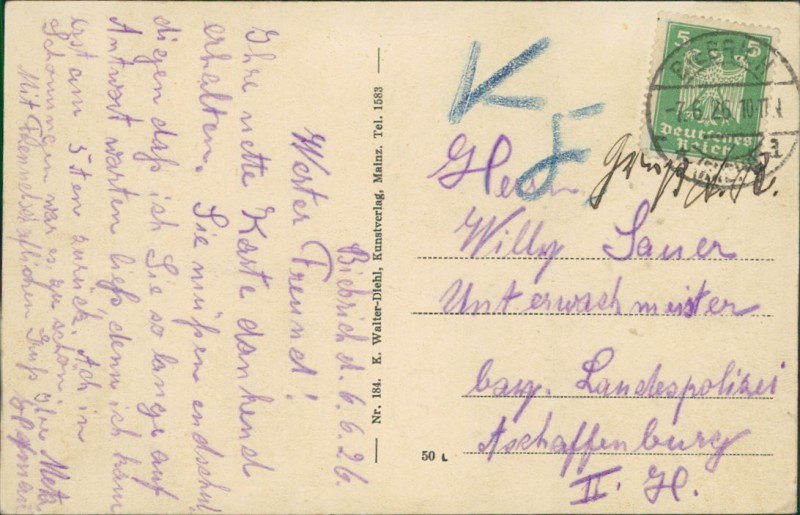 Biebrich d. 6.6.26.
Werter Freund!
Ihre nette Karte dankend
erhalten. Sie müßen endschul
digen daß ich Sie so lange auf
Antwort warten ließ, denn ich kam
erst am 5ten zurück. Ach in
war es zu schön.
Mit Freundschaftlichen Gruß Ihre
Nr. 184. K. Walter-Diehl, Kunstverlag, Mainz. Tel. 1583
K
F
5 5
Deutsches
Reich
BIEBRICH
-7.6.26. 10-11 V
Herrn
Willy Sauer
Unterwachmeister
bay. Landespolizei
Aschaffenburg
II. H.
50